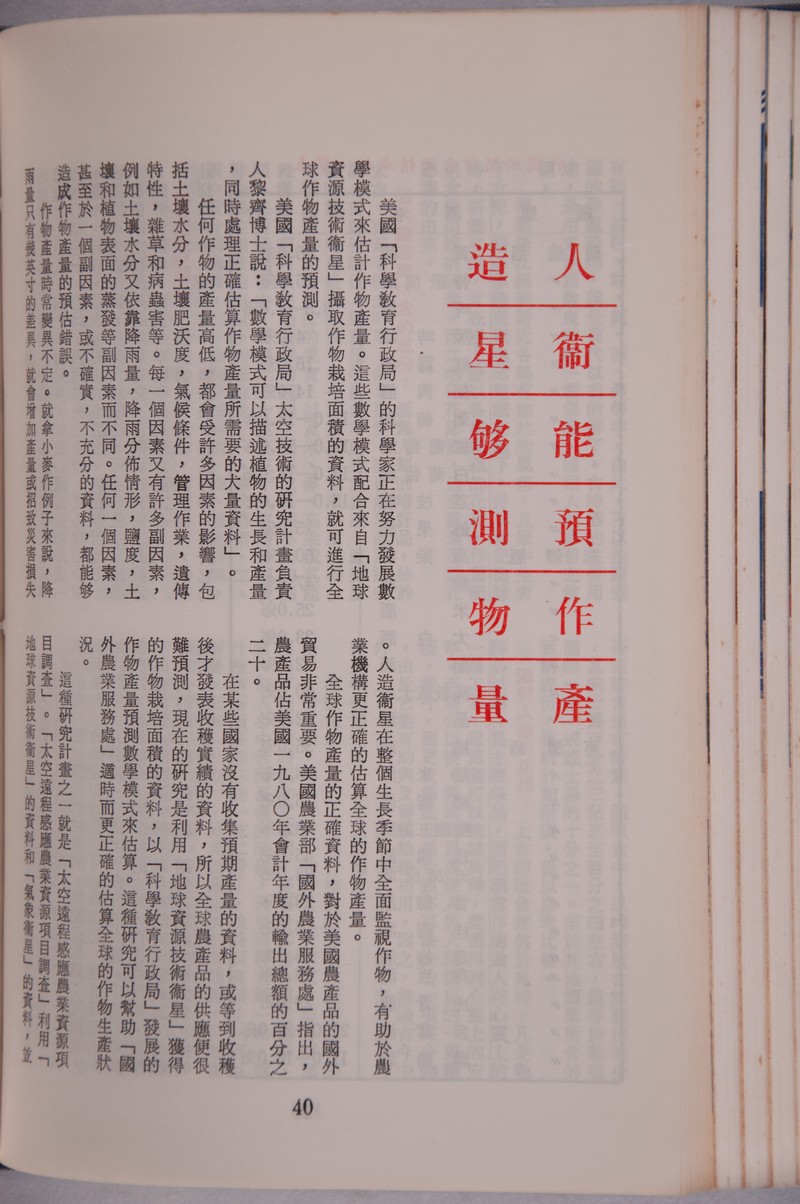 人造
衛星
能够
預測
作物
產量
美國「科學教育行政局」的科學家正在努力發展數
學模式來估計作物產量。這些數學模式配合來自「地球
資源技術衞星」攝取作物栽培面積的資料，就可進行全
球作物產量的預測。
美國「科學教育行政局」太空技術的研究計畫負責
人黎齊博士說：「數學模式可以描述植物的生長和產量
，同時處理正確估算作物產量所需要的大量資料」。
任何作物的產量高低，都會受許多因素的影響，包
括土壤水分，土壤肥沃度，氣候條件，管理作業，遺傳
特性，雜草和病蟲害等。每一個因素又有許多副因素，
例如土壤水分又依靠降雨量，降雨分佈情形，鹽度，土
壤和植物表面的蒸發等副因素而不同。任何一個因素，
甚至於一個副因素，或不確實，不充分的資料，都能够
造成作物產量的預估錯誤。
作物產量時常變異不定。就拿小麥作例子來說，降
雨量只有幾英寸的差異，就會增加產量或招致災害損失
。人造衞星在整個生長季節中全面監視作物，有助於農
業機構更正確的估算全球的作物產量。
全球作物產量的正確資料，對於美國農產品的國外
貿易非常重要。美國農業部「國外農業服務處」指出，
農產品佔美國一九八〇年會計年度的輸出總額的百分之
二十。
在某些國家沒有收集預期產量的資料，或等到收穫
後才發表收穫實績的資料，所以全球農產品的供應便很
難預測，現在的研究是利用「地球資源技術衞星」獲得
的作物栽培面積的資料，以「科學教育行政局」發展的
作物產量預測數學模式來估算。這種研究可以幫助「國
外農業服務處」適時而更正確的估算全球的作物生產狀
況。
這種研究計畫之一就是「太空遠程感應農業資源項
目調查」。「太空遠程感應農業資源項目調查」利用「
地球資源技術衞星」的資料和「氣象衞星」的資料，並
40